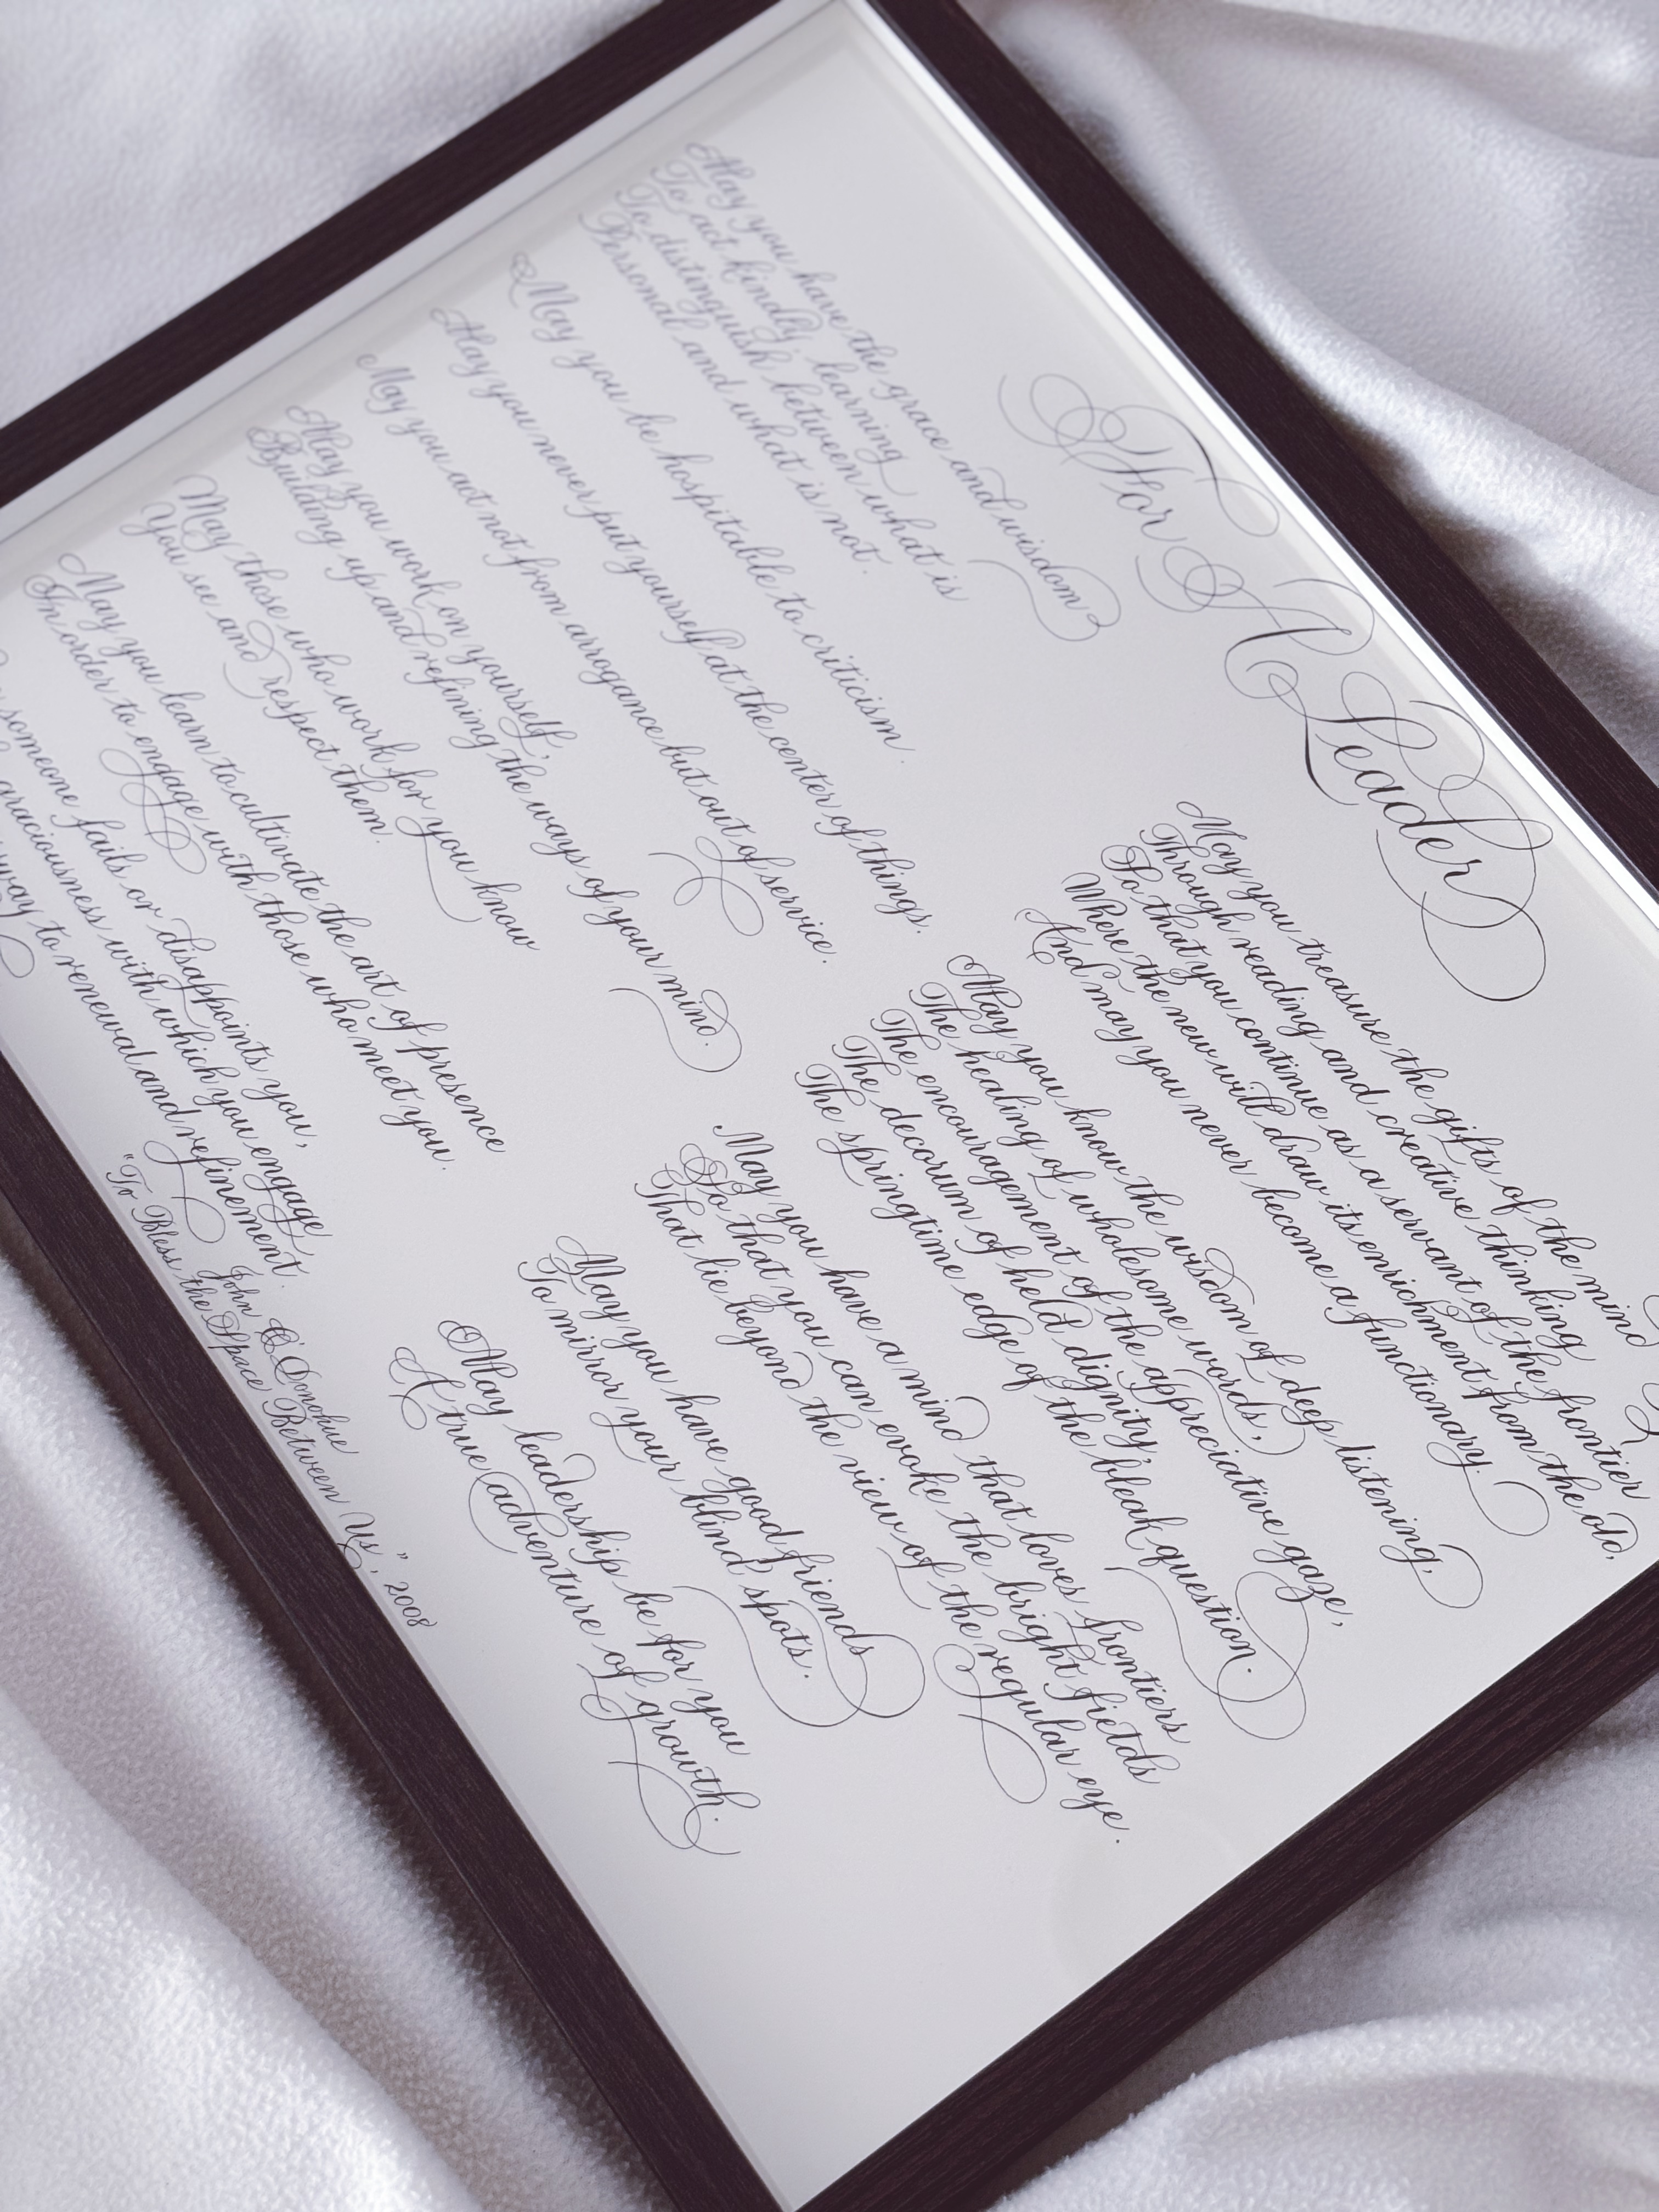 For A Leader
May you have the grace and wisdom
To act kindly, learning
To distinguish between what is
Personal and what is not.
May you be hospitable to criticism.
May you never put yourself at the center of things.
May you act not from arrogance but out of service.
May you work on yourself,
Building up and refining the ways of your mind.
May those who work for you know
You see and respect them.
May you learn to cultivate the art of presence
In order to engage with those who meet you.
someone fails or disappoints you,
graciousness with which you engage
way to renewal and refinement.
May you treasure the gifts of the mind
Through reading and creative thinking
So that you continue as a servant of the frontier
Where the new will draw its enrichment from the old,
And may you never become a functionary.
May you know the wisdom of deep listening,
The healing of wholesome words,
The encouragement of the appreciative gaze,
The decorum of held dignity,
The springtime edge of the bleak question.
May you have a mind that loves frontiers
So that you can evoke the bright fields
That lie beyond the view of the regular eye.
May you have good friends
To mirror your blind spots.
May leadership be for you
A true adventure of growth.
John O'Donohue
"To Bless the Space Between Us", 2008